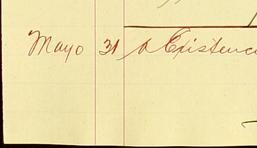 Mayo 31 a Existenc